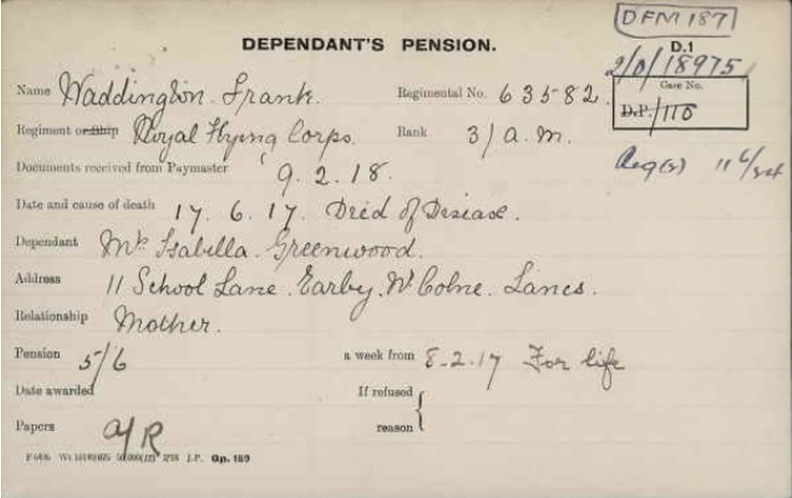 DFM 187
DEPENDANT'S PENSION.
D.1
2/D/18975
Name Waddington. Frank. Regimental No. 63582.
Case No.
D.P./110
Regiment or Ship Royal Flying Corps. Rank 3/a.m.
Documents received from Paymaster 9.2.18.
Date and cause of death 17.6.17. Died of Disease.
Dependant Mrs Isabella. Greenwood.
Address 11 School Lane. Earby. Nr Colne. Lancs.
Relationship Mother.
Pension 5/6 a week from 8.2.17 For life
Date awarded If refused
Papers reason
J.P. Gp. 189